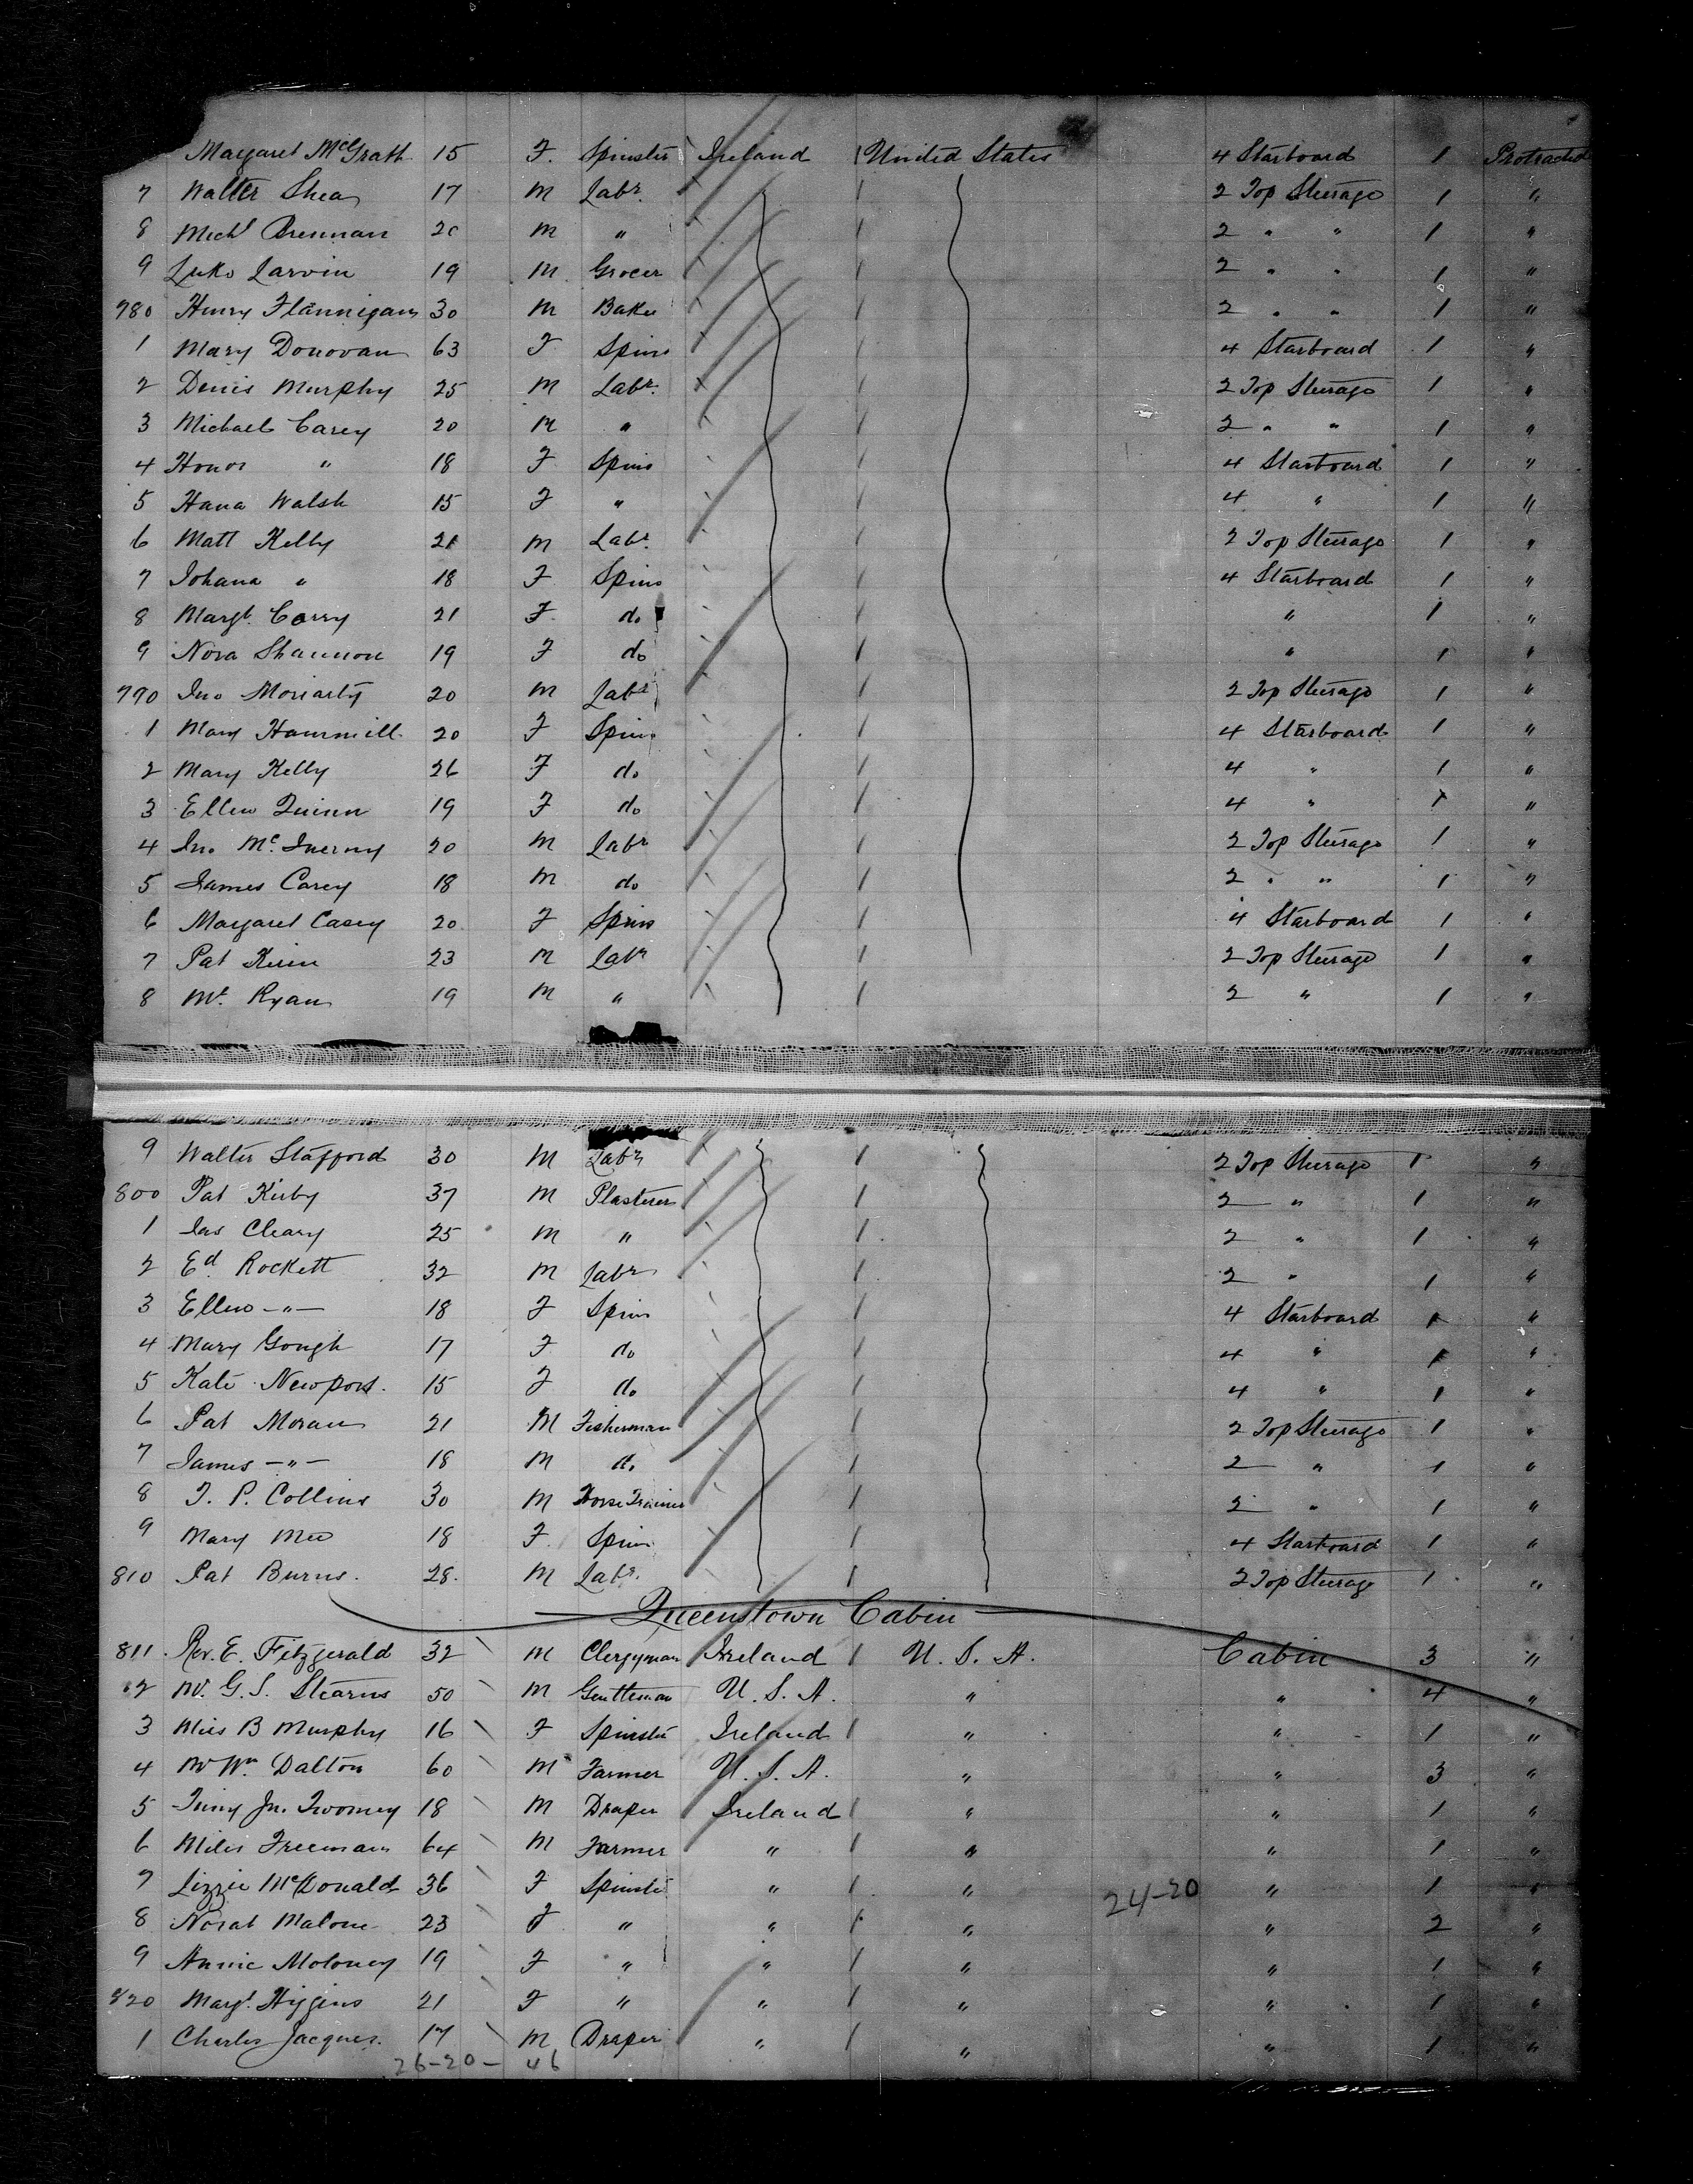 Margaret McGrath 15 F. Spinster Ireland 1 United States 4 Starboard 1 Protracted
7 Walter Shea 17 M Labr. 1 2 Top Steerage 1 "
8 Michl Brennan 20 M " 1 2 " " 1 "
9 Luke Larvin 19 M Grocer 1 2 " " 1 "
780 Henry Flannigan 30 M Baker 1 2 " " 1 "
1 Mary Donovan 63 F Spins 1 4 Starboard 1 "
2 Denis Murphy 25 M Labr. 1 2 Top Steerage 1 "
3 Michael Carey 20 M " 1 2 " " 1 "
4 Honor " 18 F Spins 1 4 Starboard 1 "
5 Hana Walsh 15 F " 1 4 " 1 "
6 Matt Kelly 21 M Labr. 1 2 Top Steerage 1 "
7 Johana " 18 F Spins 1 4 Starboard 1 "
8 Margt. Corry 21 F do 1 " 1 "
9 Nora Shannon 19 F do 1 " 1 "
790 Jno Moriarty 20 M Labr 1 2 Top Steerage 1 "
1 Mary Hammill 20 F Spins 1 4 Starboard 1 "
2 Mary Kelly 26 F do 1 4 " 1 "
3 Ellen Quinn 19 F do 1 4 " 1 "
4 Jno. Mc. Inerny 20 M Labr 1 2 Top Steerage 1 "
5 James Carey 18 M do 1 2 " " 1 "
6 Margaret Casey 20 F Spins 1 4 Starboard 1 "
7 Pat 23 M Labr 1 2 Top Steerage 1 "
8 Mt. Ryan 19 M " 1 2 " 1 "
9 Walter Stafford 30 M Labr 1 2 Top Steerage 1 "
800 Pat Kirby 37 M Plasterer 1 2 " 1 "
1 Jas Cleary 25 M " 1 2 " 1 "
2 Ed. Rockett 32 M Labr 1 2 " 1 "
3 Ellen - " - 18 F Spins 1 4 Starboard 1 "
4 Mary Gough 17 F do 1 4 " 1 "
5 Kate Newport. 15 F do 1 4 " 1 "
6 Pat Moran 21 M Fisherman 1 2 Top Steerage 1 "
7 James - " - 18 M do. 1 2 " 1 "
8 T. P. Collins 30 M Horse Trainer 1 2 " 1 "
9 Mary Mee 18 F Spins 1 4 Starboard 1 "
810 Pat Burns. 28. M Labr. 1 2 Top Steerage 1 "
Queenstown Cabin
811. Rev. E. Fitzgerald 32 M Clergyman Ireland 1 U. S. A. Cabin 3 "
12 Mr. G. S. Stearns 50 M Gentleman U. S. A. " " 4 "
3 Miss B Murphy 16 F Spinster Ireland 1 " " 1 "
4 Mr Wm. Dalton 60 M Farmer U. S. A. " " 3 "
5 Jn. Twomey 18 M Draper Ireland 1 " " 1 "
6 Miles Freeman 64 M Farmer " 1 " " 1 "
7 Lizzie McDonald 36 F Spinster " 1 " 24-20 " 1 "
8 Norah Malone 23 F " " 1 " " 2 "
9 Annie Moloney 19 F " " 1 " " 1 "
820 Margt. Higgins 21 F " " 1 " " 1 "
1 Charles Jacques. 17 M Draper " 1 " " 1 "
26-20- 46